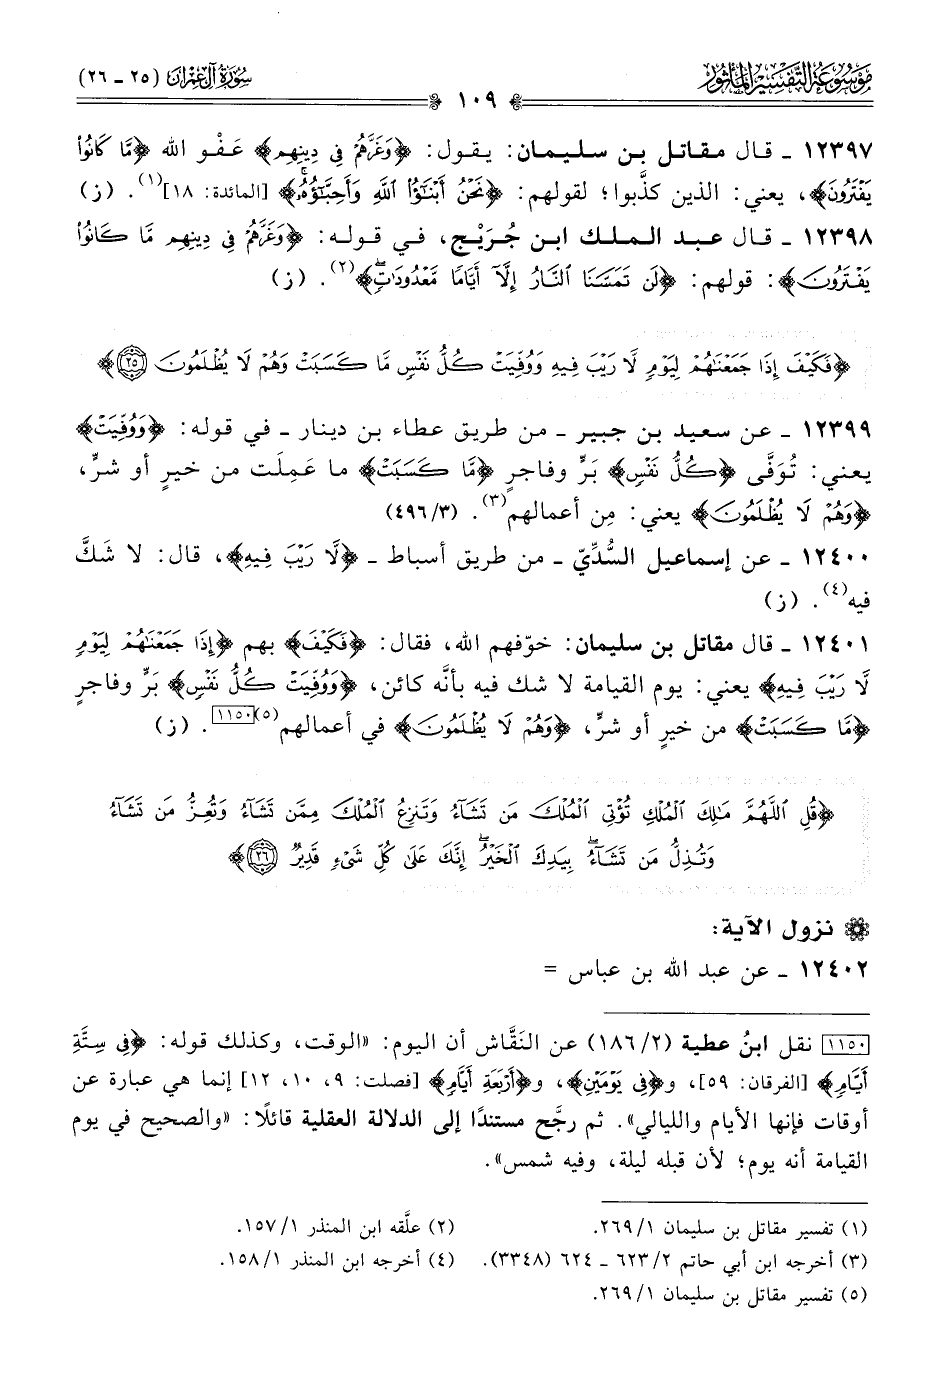 موسوعة التفسير المأثور
سورة آل عمران (٢٥ - ٢٦)
١٠٩
١٢٣٩٧ - قال مقاتل بن سليمان: يقول: ﴿وَغَرَّهُمْ فِي دِينِهِم﴾ عَفْو الله ﴿مَّا كَانُوا۟
يَفْتَرُونَ﴾، يعني: الذين كذَّبوا؛ لقولهم: ﴿نَحْنُ أَبْنَٰٓؤُا۟ ٱللَّهِ وَأَحِبَّٰٓؤُهُۥ﴾ [المائدة: ١٨](١). (ز)
١٢٣٩٨ - قال عبد الملك ابن جُرَيْج، في قوله: ﴿وَغَرَّهُمْ فِي دِينِهِم مَّا كَانُوا۟
يَفْتَرُونَ﴾: قولهم: ﴿لَن تَمَسَّنَا ٱلنَّارُ إِلَّآ أَيَّامًا مَّعْدُودَٰتٍ﴾(٢). (ز)
﴿فَكَيْفَ إِذَا جَمَعْنَٰهُمْ لِيَوْمٍ لَّا رَيْبَ فِيهِ وَوُفِّيَتْ كُلُّ نَفْسٍ مَّا كَسَبَتْ وَهُمْ لَا يُظْلَمُونَ ٢٥﴾
١٢٣٩٩ - عن سعيد بن جبير - من طريق عطاء بن دينار - في قوله: ﴿وَوُفِّيَتْ﴾
يعني: تُوَفَّى ﴿كُلُّ نَفْسٍ﴾ بَرٍّ وفاجرٍ ﴿مَّا كَسَبَتْ﴾ ما عَمِلَت من خيرٍ أو شرٍّ،
﴿وَهُمْ لَا يُظْلَمُونَ﴾ يعني: مِن أعمالهم(٣). (٤٩٦/٣)
١٢٤٠٠ - عن إسماعيل السُّدِّيّ - من طريق أسباط - ﴿لَّا رَيْبَ فِيهِ﴾، قال: لا شَكَّ
فيه(٤). (ز)
١٢٤٠١ - قال مقاتل بن سليمان: خوّفهم الله، فقال: ﴿فَكَيْفَ﴾ بهم ﴿إِذَا جَمَعْنَٰهُمْ لِيَوْمٍ
لَّا رَيْبَ فِيهِ﴾ يعني: يوم القيامة لا شك فيه بأنَّه كائن، ﴿وَوُفِّيَتْ كُلُّ نَفْسٍ﴾ بَرٍّ وفاجرٍ
﴿مَّا كَسَبَتْ﴾ من خيرٍ أو شرٍّ، ﴿وَهُمْ لَا يُظْلَمُونَ﴾ في أعمالهم(٥)[١١٥٠]. (ز)
﴿قُلِ ٱللَّهُمَّ مَٰلِكَ ٱلْمُلْكِ تُؤْتِي ٱلْمُلْكَ مَن تَشَآءُ وَتَنزِعُ ٱلْمُلْكَ مِمَّن تَشَآءُ وَتُعِزُّ مَن تَشَآءُ
وَتُذِلُّ مَن تَشَآءُ ۖ بِيَدِكَ ٱلْخَيْرُ ۖ إِنَّكَ عَلَىٰ كُلِّ شَيْءٍ قَدِيرٌ ٢٦﴾
نزول الآية:
١٢٤٠٢ - عن عبد الله بن عباس =
[١١٥٠] نقل ابنُ عطية (١٨٦/٢) عن النَقَّاش أن اليوم: «الوقت، وكذلك قوله: ﴿فِي سِتَّةِ
أَيَّامٍ﴾ [الفرقان: ٥٩]، و﴿فِي يَوْمَيْنِ﴾، و﴿أَرْبَعَةِ أَيَّامٍ﴾ [فصلت: ٩، ١٠، ١٢] إنما هي عبارة عن
أوقات فإنها الأيام والليالي». ثم رجَّح مستندًا إلى الدلالة العقلية قائلًا: «والصحيح في يوم
القيامة أنه يوم؛ لأن قبله ليلة، وفيه شمس».
(١) تفسير مقاتل بن سليمان ٢٦٩/١.
(٢) علَّقه ابن المنذر ١٥٧/١.
(٣) أخرجه ابن أبي حاتم ٦٢٣/٢ - ٦٢٤ (٣٣٤٨).
(٤) أخرجه ابن المنذر ١٥٨/١.
(٥) تفسير مقاتل بن سليمان ٢٦٩/١.